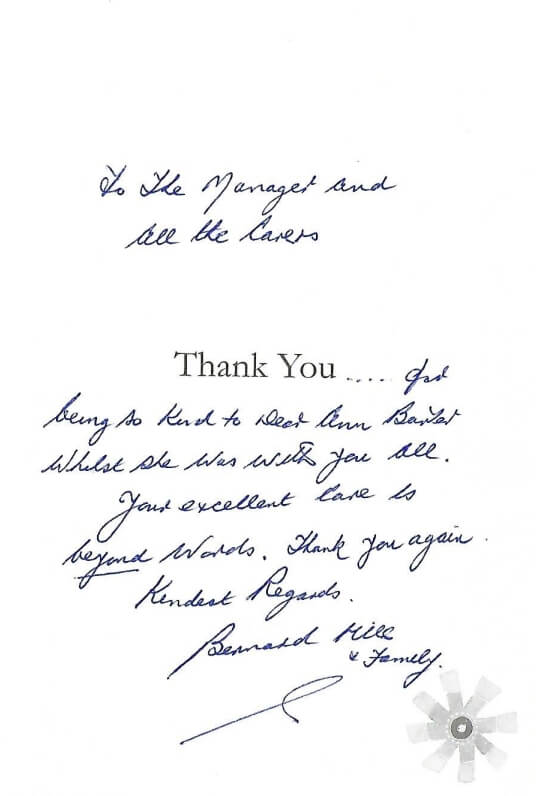 To The Manager and
all the Carers
Thank You ..... for
being so kind to Dear Ann Baxter
Whilst she was with you all.
Your excellent Care is
beyond Words. Thank you again.
Kindest Regards.
Bernard Hill
& Family.